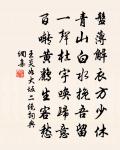 盤薄解衣方少休
青山白水挽吾留
一聲杜宇喚歸意
百囀黃鸝生客愁
王炎大坂二絕詞典
網集